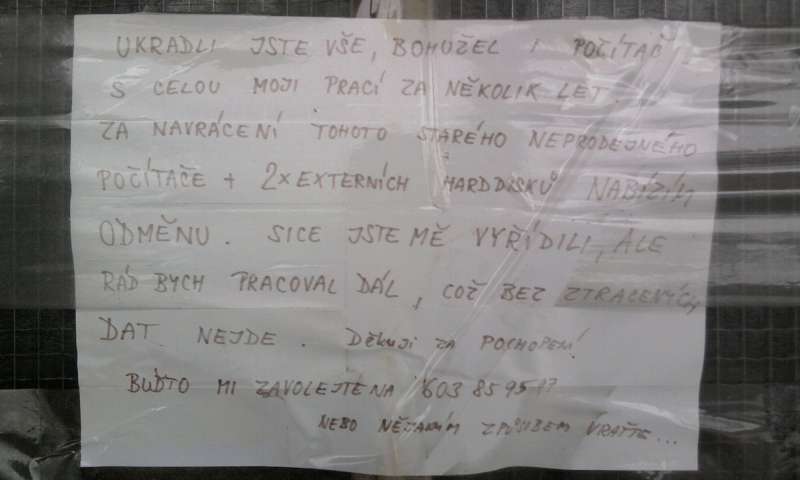 UKRADLI JSTE VŠE, BOHUŽEL I POČÍTAČ
S CELOU MOJI PRACÍ ZA NĚKOLIK LET.
ZA NAVRÁCENÍ TOHOTO STARÉHO NEPRODEJNÉHO
POČÍTAČE + 2x EXTERNÍCH HARDDISKŮ NABÍZÍM
ODMĚNU. SICE JSTE MĚ VYŘÍDILI, ALE
RÁD BYCH PRACOVAL DÁL, COŽ BEZ ZTRACENÝCH
DAT NEJDE. Děkuji za POCHOPENÍ!
BUĎTO MI ZAVOLEJTE NA 603 85 95
NEBO NĚJAKÝM ZPŮSOBEM VRAŤTE...